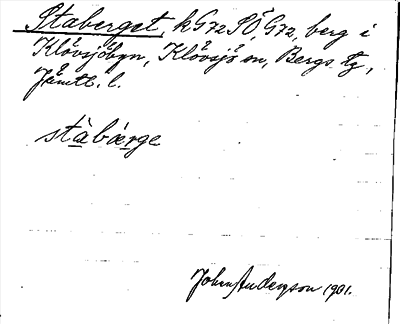 Staberget, kG72SÖ, G72, berg i
Klövsjöbyn, Klövsjö sn, Bergs tg,
Jämtl. l.
stàbárge
John Anderson 1901.